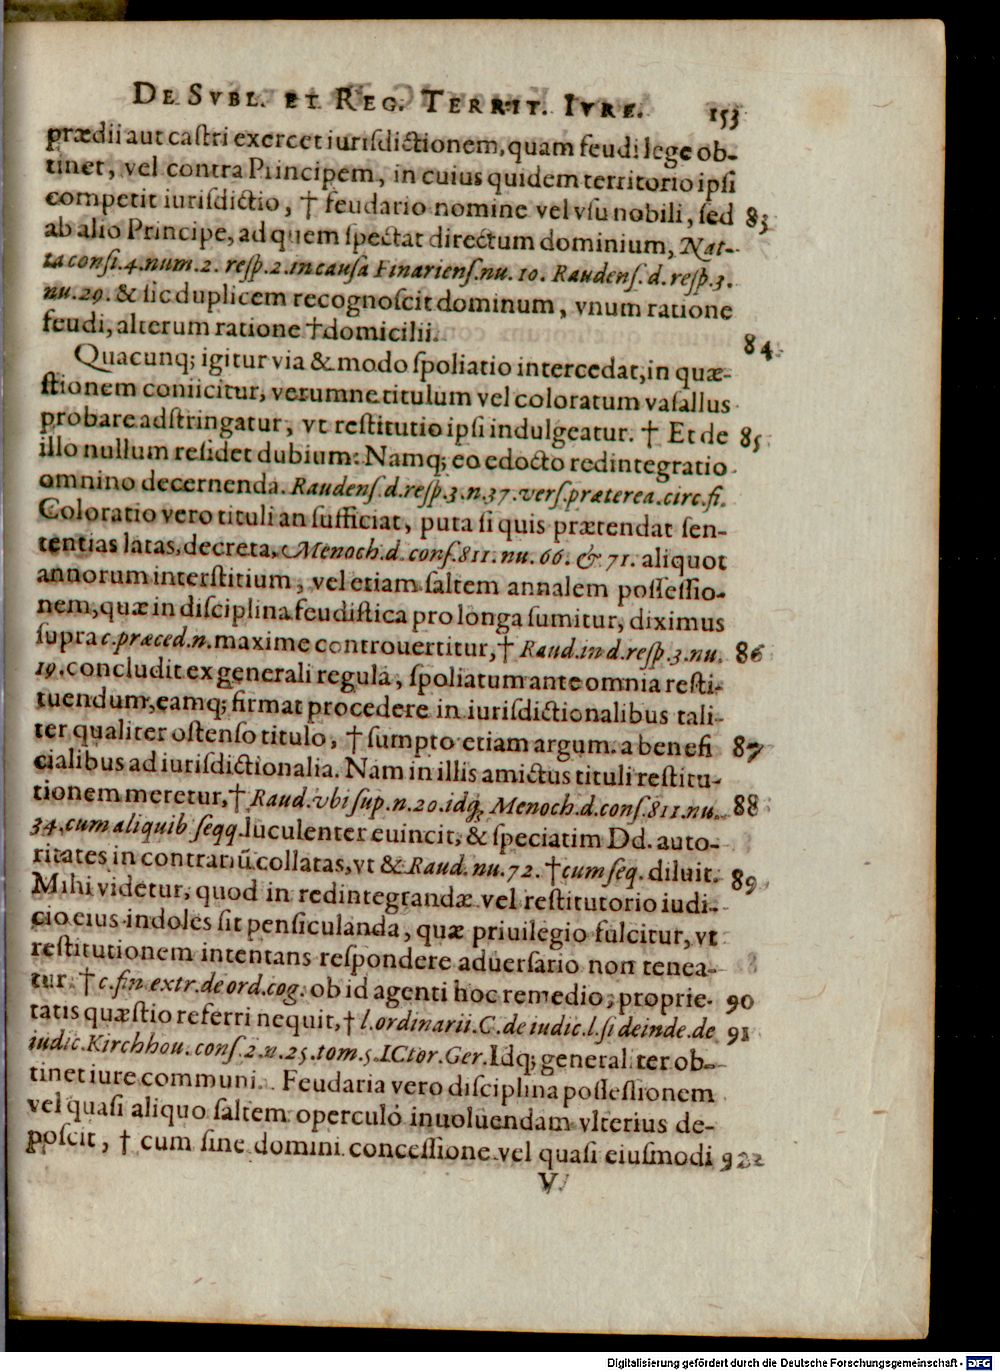 DE SVBL. ET REG. TERRIT. IVRE. 153
prædii aut castri exercet iurisdictionem, quam feudi lege ob-
tinet, vel contra Principem, in cuius quidem territorio ipsi
competit iurisdictio, † feudario nomine vel vsu nobili, sed 83
ab alio Principe, ad quem spectat directum dominium, Nat-
ta consi. 4. num. 2. resp. 2. in causa Finariens. nu. 10. Raudens. d. resp. 3.
nu. 29. & sic duplicem recognoscit dominum, vnum ratione
feudi, alterum ratione † domicilii. 84
Quacunq; igitur via & modo spoliatio intercedat, in quæ-
stionem coniicitur, verumne titulum vel coloratum vasallus
probare adstringatur, vt restitutio ipsi indulgeatur. † Et de 85
illo nullum residet dubium: Namq; eo edocto redintegratio
omnino decernenda. Raudens. d. resp. 3. n. 37. vers. præterea. circ. fi.
Coloratio vero tituli an sufficiat, puta si quis prætendat sen-
tentias latas, decreta, Menoch. d. cons. 811. nu. 66. & 71. aliquot
annorum interstitium, vel etiam saltem annalem possessio-
nem, quæ in disciplina feudistica pro longa sumitur, diximus
supra c. præced. n. maxime controuertitur, † Raud. in d. resp. 3. nu. 86
19. concludit ex generali regula, spoliatum ante omnia resti-
tuendum, eamq; firmat procedere in iurisdictionalibus tali-
ter qualiter ostenso titulo, † sumpto etiam argum. a benefi 87
cialibus ad iurisdictionalia. Nam in illis amictus tituli restitu-
tionem meretur, † Raud. vbi sup. n. 20. idq; Menoch. d. cons. 811. nu. 88
34. cum aliquib seqq. luculenter euincit, & speciatim Dd. auto-
ritates in contrariū collatas, vt & Raud. nu. 72. † cum seq. diluit. 89
Mihi videtur, quod in redintegrandæ vel restitutorio iudi-
cio eius indoles sit pensiculanda, quæ priuilegio fulcitur, vt
restitutionem intentans respondere aduersario non tenea-
tur. † c. fin extr. de ord. cog. ob id agenti hoc remedio, proprie- 90
tatis quæstio referri nequit, † l. ordinarii. C. de iudic. l. si deinde. de 91
iudic. Kirchhou. cons. 2. n. 25. tom. 5. ICtor. Ger. Idq; generaliter ob-
tinet iure communi. Feudaria vero disciplina possessionem
vel quasi aliquo saltem operculo inuoluendam vlterius de-
poscit, † cum sine domini concessione vel quasi eiusmodi 92
V
Digitalisierung gefördert durch die Deutsche Forschungsgemeinschaft - DFG